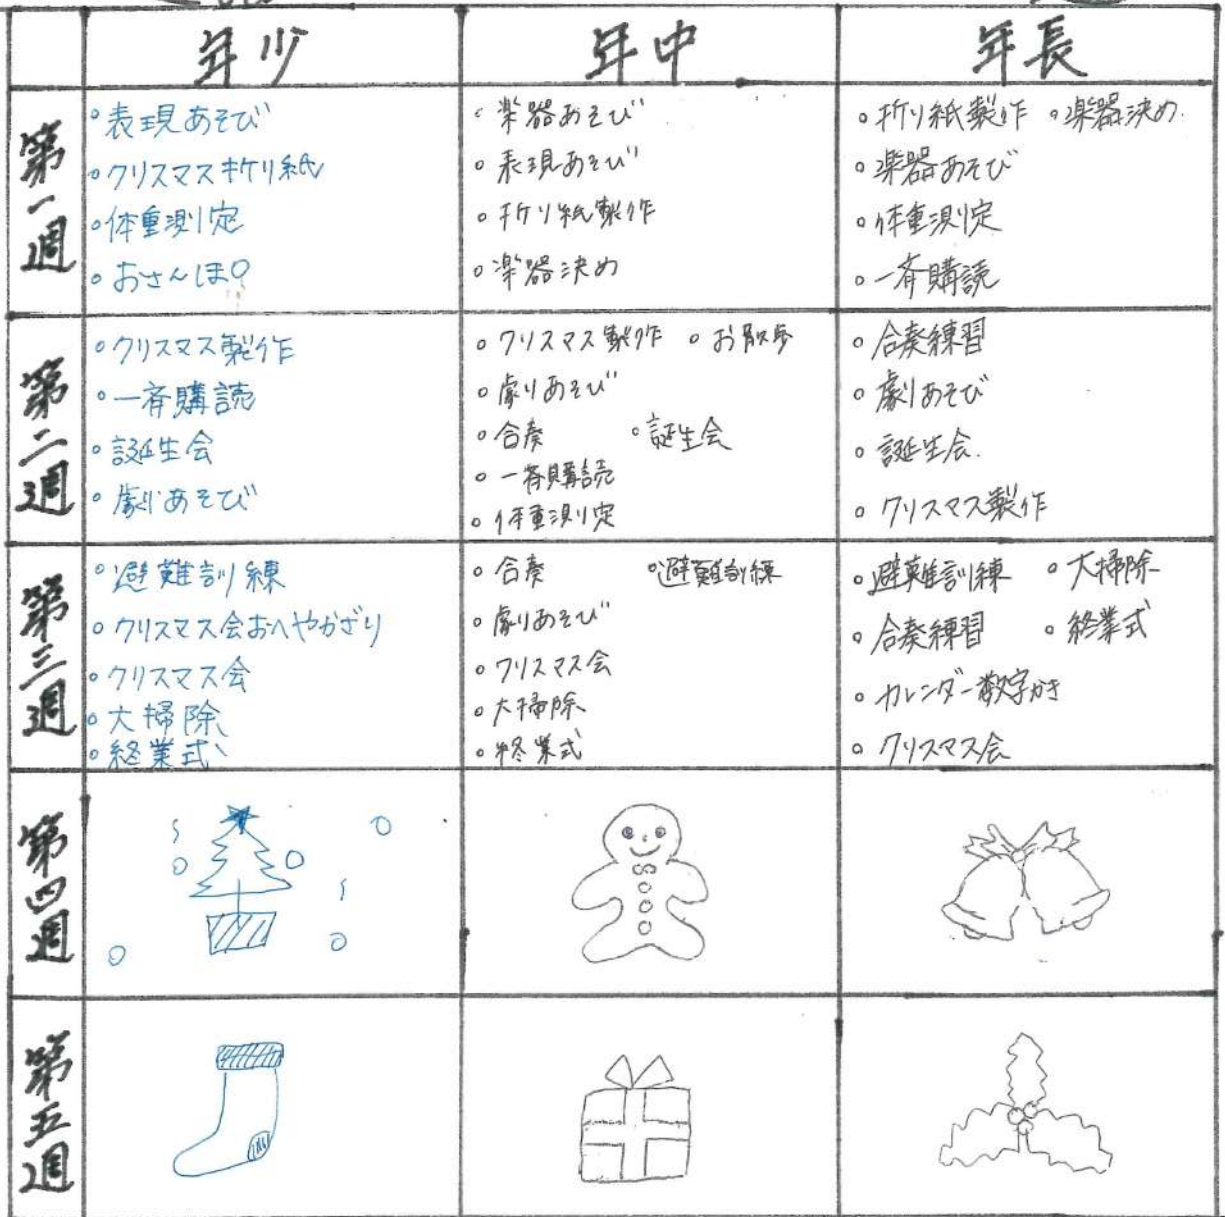 年少 年中 年長
第一週
・表現あそび
・クリスマス折り紙
・体重測定
・おさんぽ
・楽器あそび
・表現あそび
・折り紙製作
・楽器決め
・折り紙製作 ・楽器決め
・楽器あそび
・体重測定
・一斉購読
第二週
・クリスマス製作
・一斉購読
・誕生会
・劇あそび
・クリスマス製作 ・お散歩
・劇あそび
・合奏 ・誕生会
・一斉購読
・体重測定
・合奏練習
・劇あそび
・誕生会
・クリスマス製作
第三週
・避難訓練
・クリスマス会おへやかざり
・クリスマス会
・大掃除
・終業式
・合奏 ・避難訓練
・劇あそび
・クリスマス会
・大掃除
・終業式
・避難訓練 ・大掃除
・合奏練習 ・終業式
・カレンダー数字かき
・クリスマス会
第四週
第五週